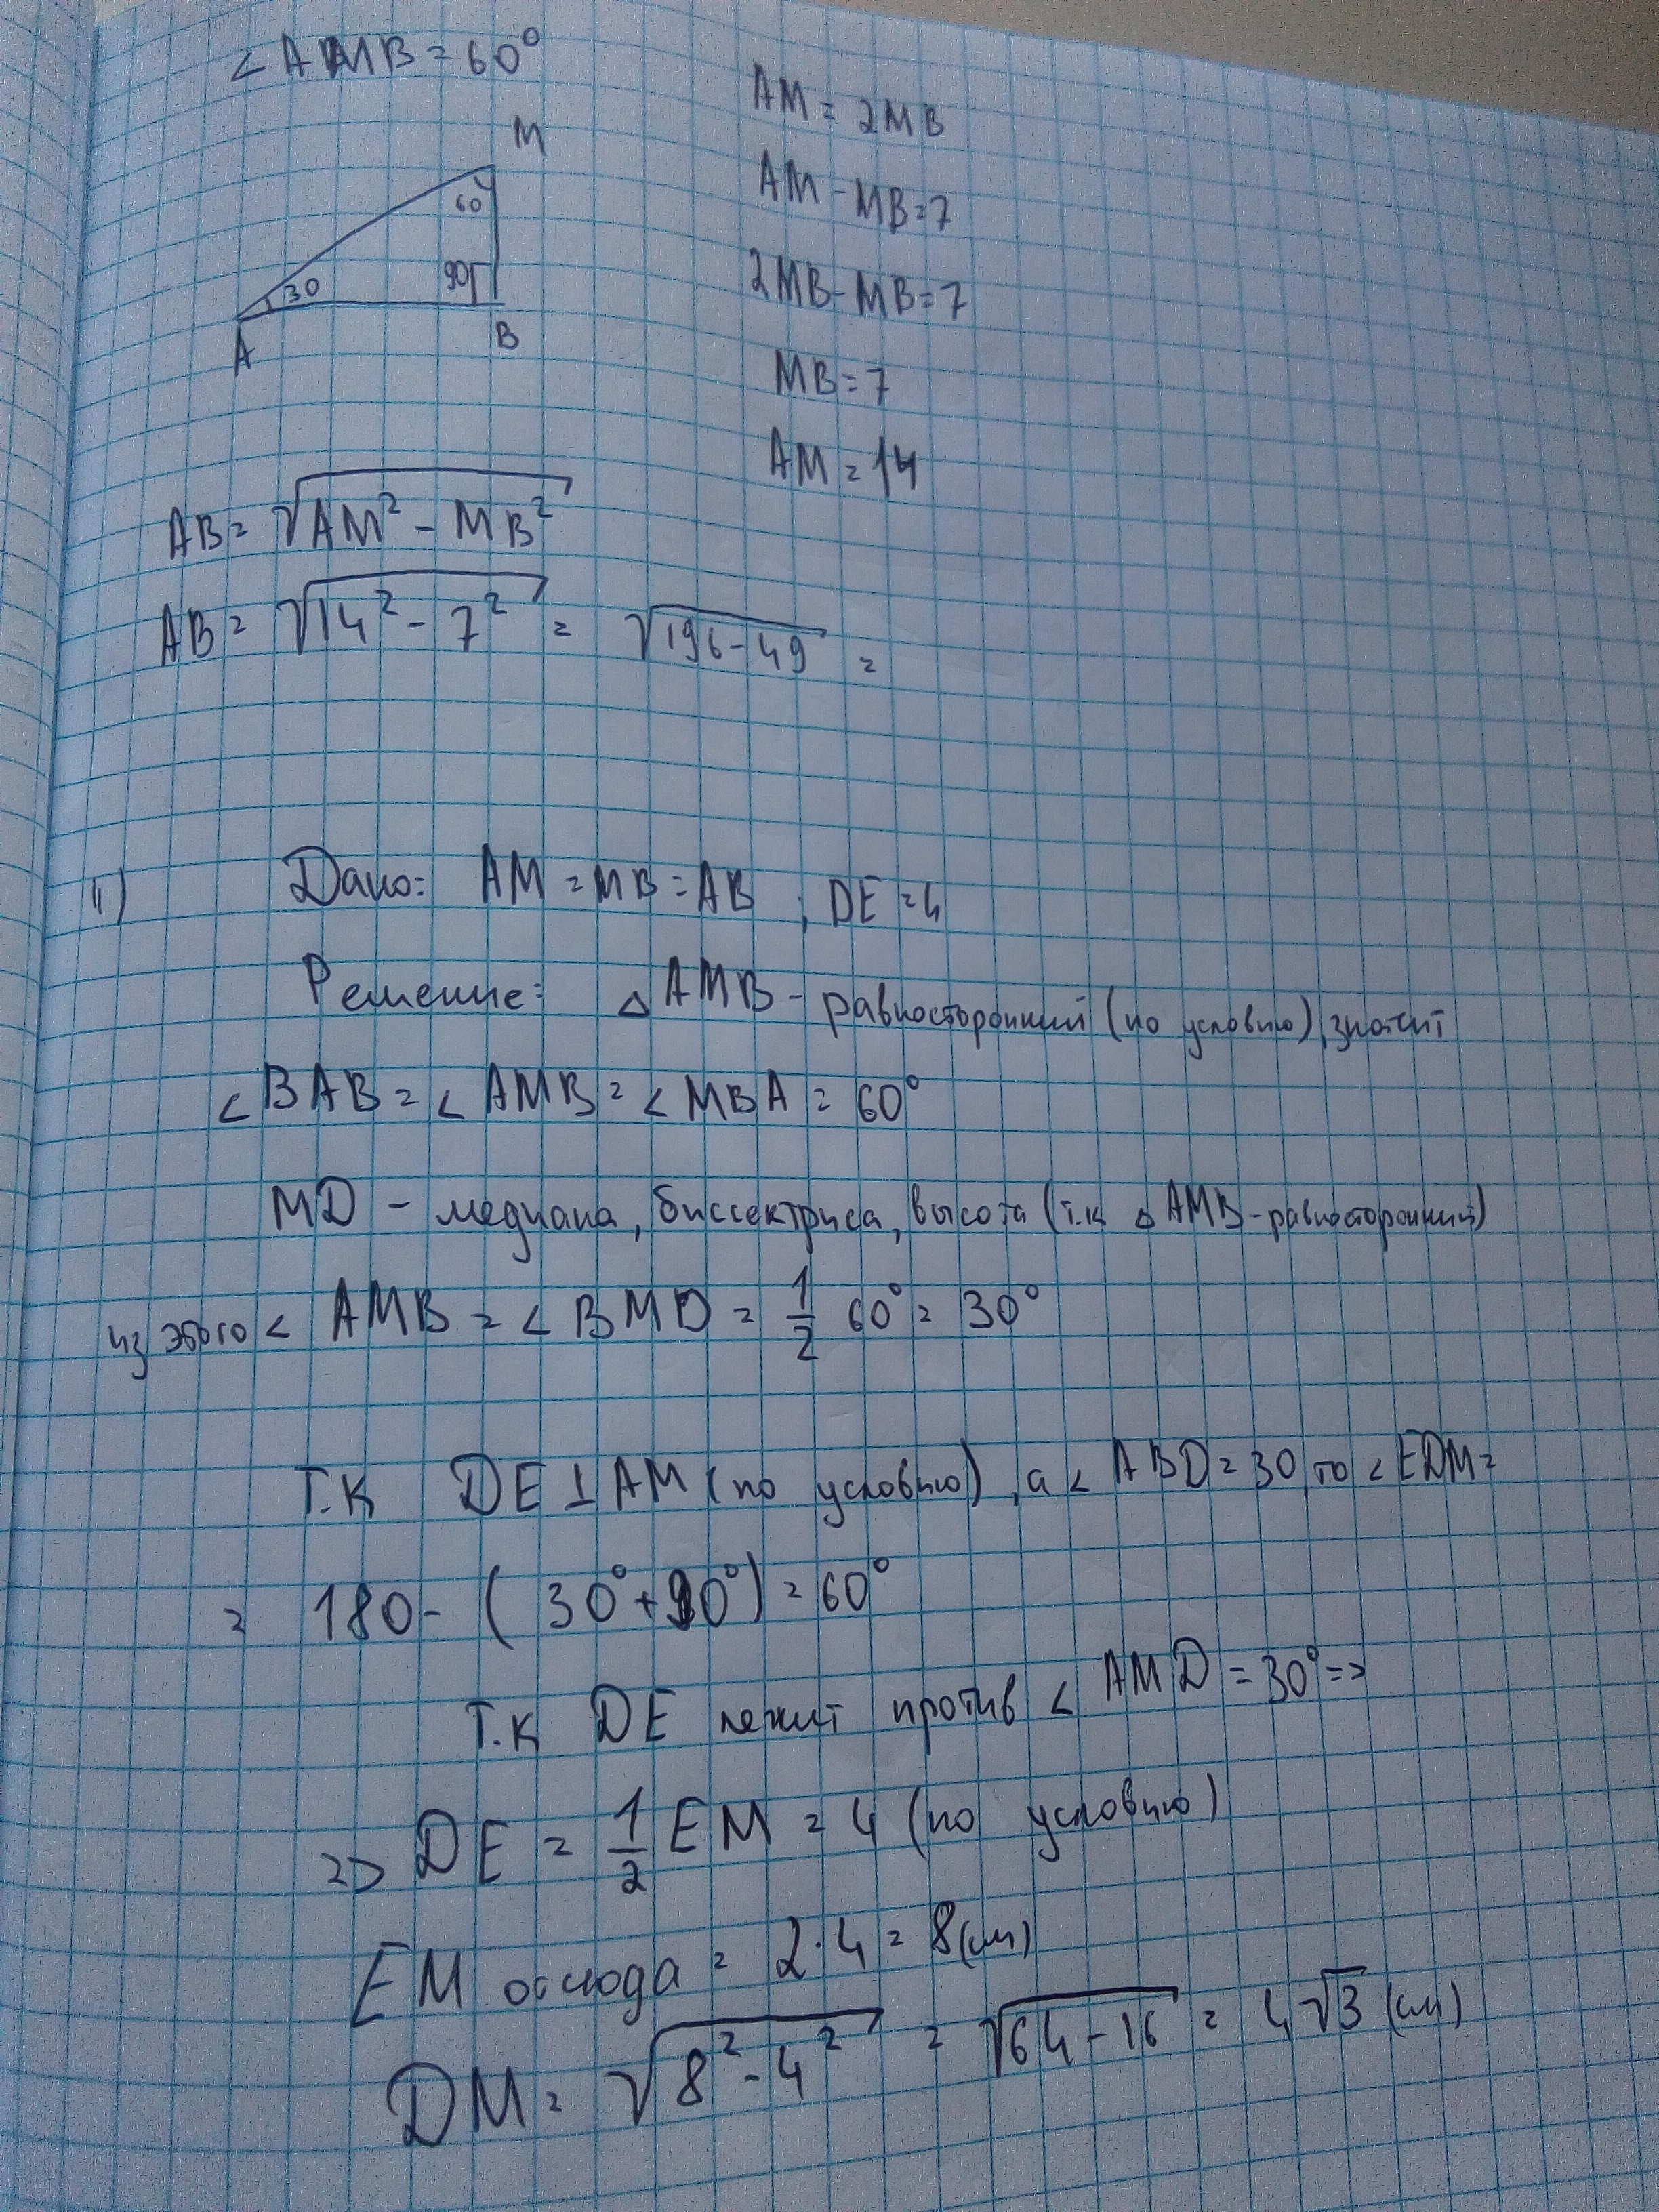 ∠AMB = 60°
M
60
30
90
A
B
AM = 2MB
AM - MB = 7
2MB - MB = 7
MB = 7
AM = 14
AB = √AM² - MB²
AB = √14² - 7² = √196 - 49 =
Дано: AM = MB = AB , DE = 4
Решение: △AMB - равносторонний (по условию), значит
∠BAB = ∠AMB = ∠MBA = 60°
MD - медиана, биссектриса, высота (т.к △AMB - равносторонний)
из этого ∠AMB = ∠BMD = 1/2 60° = 30°
Т.к DE ⊥ AM (по условию), а ∠ABD = 30, то ∠EDM =
= 180 - (30° + 90°) = 60°
Т.к DE лежит против ∠AMD = 30° =>
=> DE = 1/2 EM = 4 (по условию)
EM отсюда = 2·4 = 8 (см)
DM = √8² - 4² = √64 - 16 = 4√3 (см)